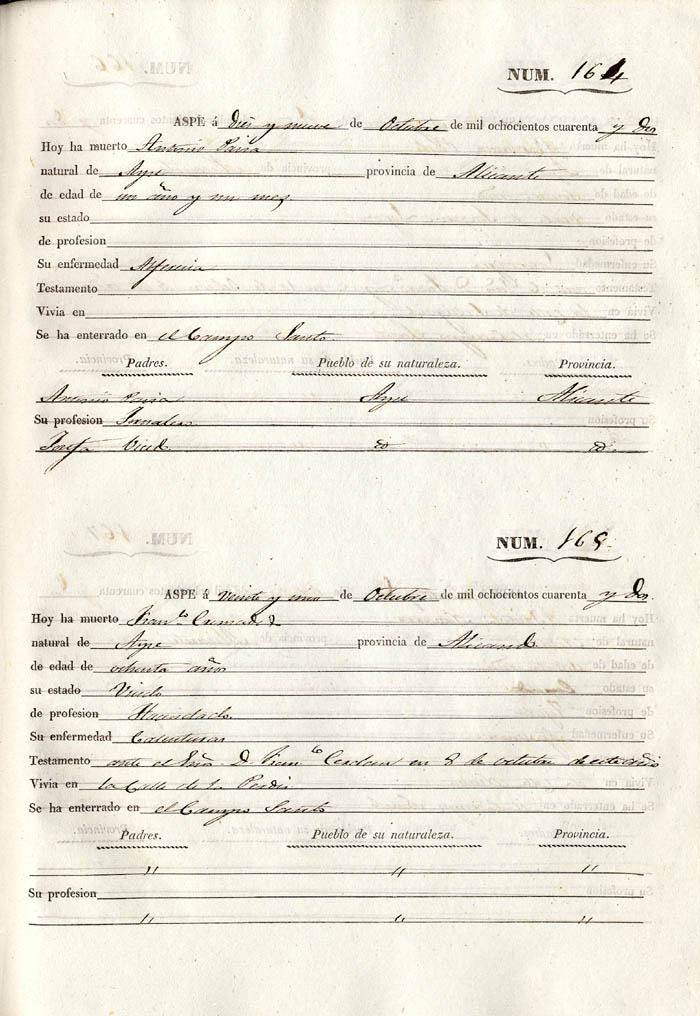 NUM. 164
ASPE á Dies y nueve de Octubre de mil ochocientos cuarenta y dos
Hoy ha muerto Antonio
natural de Aspe provincia de Alicante
de edad de un año y un mes
su estado
de profesion
Su enfermedad Alferecia
Testamento
Vivia en
Se ha enterrado en el Campo Santo
Padres. Pueblo de su naturaleza. Provincia.
Antonio Aspe Alicante
Su profesion Jornalero
Josefa id id
NUM. 165
ASPE á Veinte y uno de Octubre de mil ochocientos cuarenta y dos.
Hoy ha muerto Fran.co
natural de Aspe provincia de Alicante
de edad de ochenta años
su estado Viudo
de profesion Hacendado
Su enfermedad Calenturas
Testamento ante el D. Fran.co en 8 de octubre de este año
Vivia en la Calle de la
Se ha enterrado en el Campo Santo
Padres. Pueblo de su naturaleza. Provincia.
" " "
Su profesion
" " "